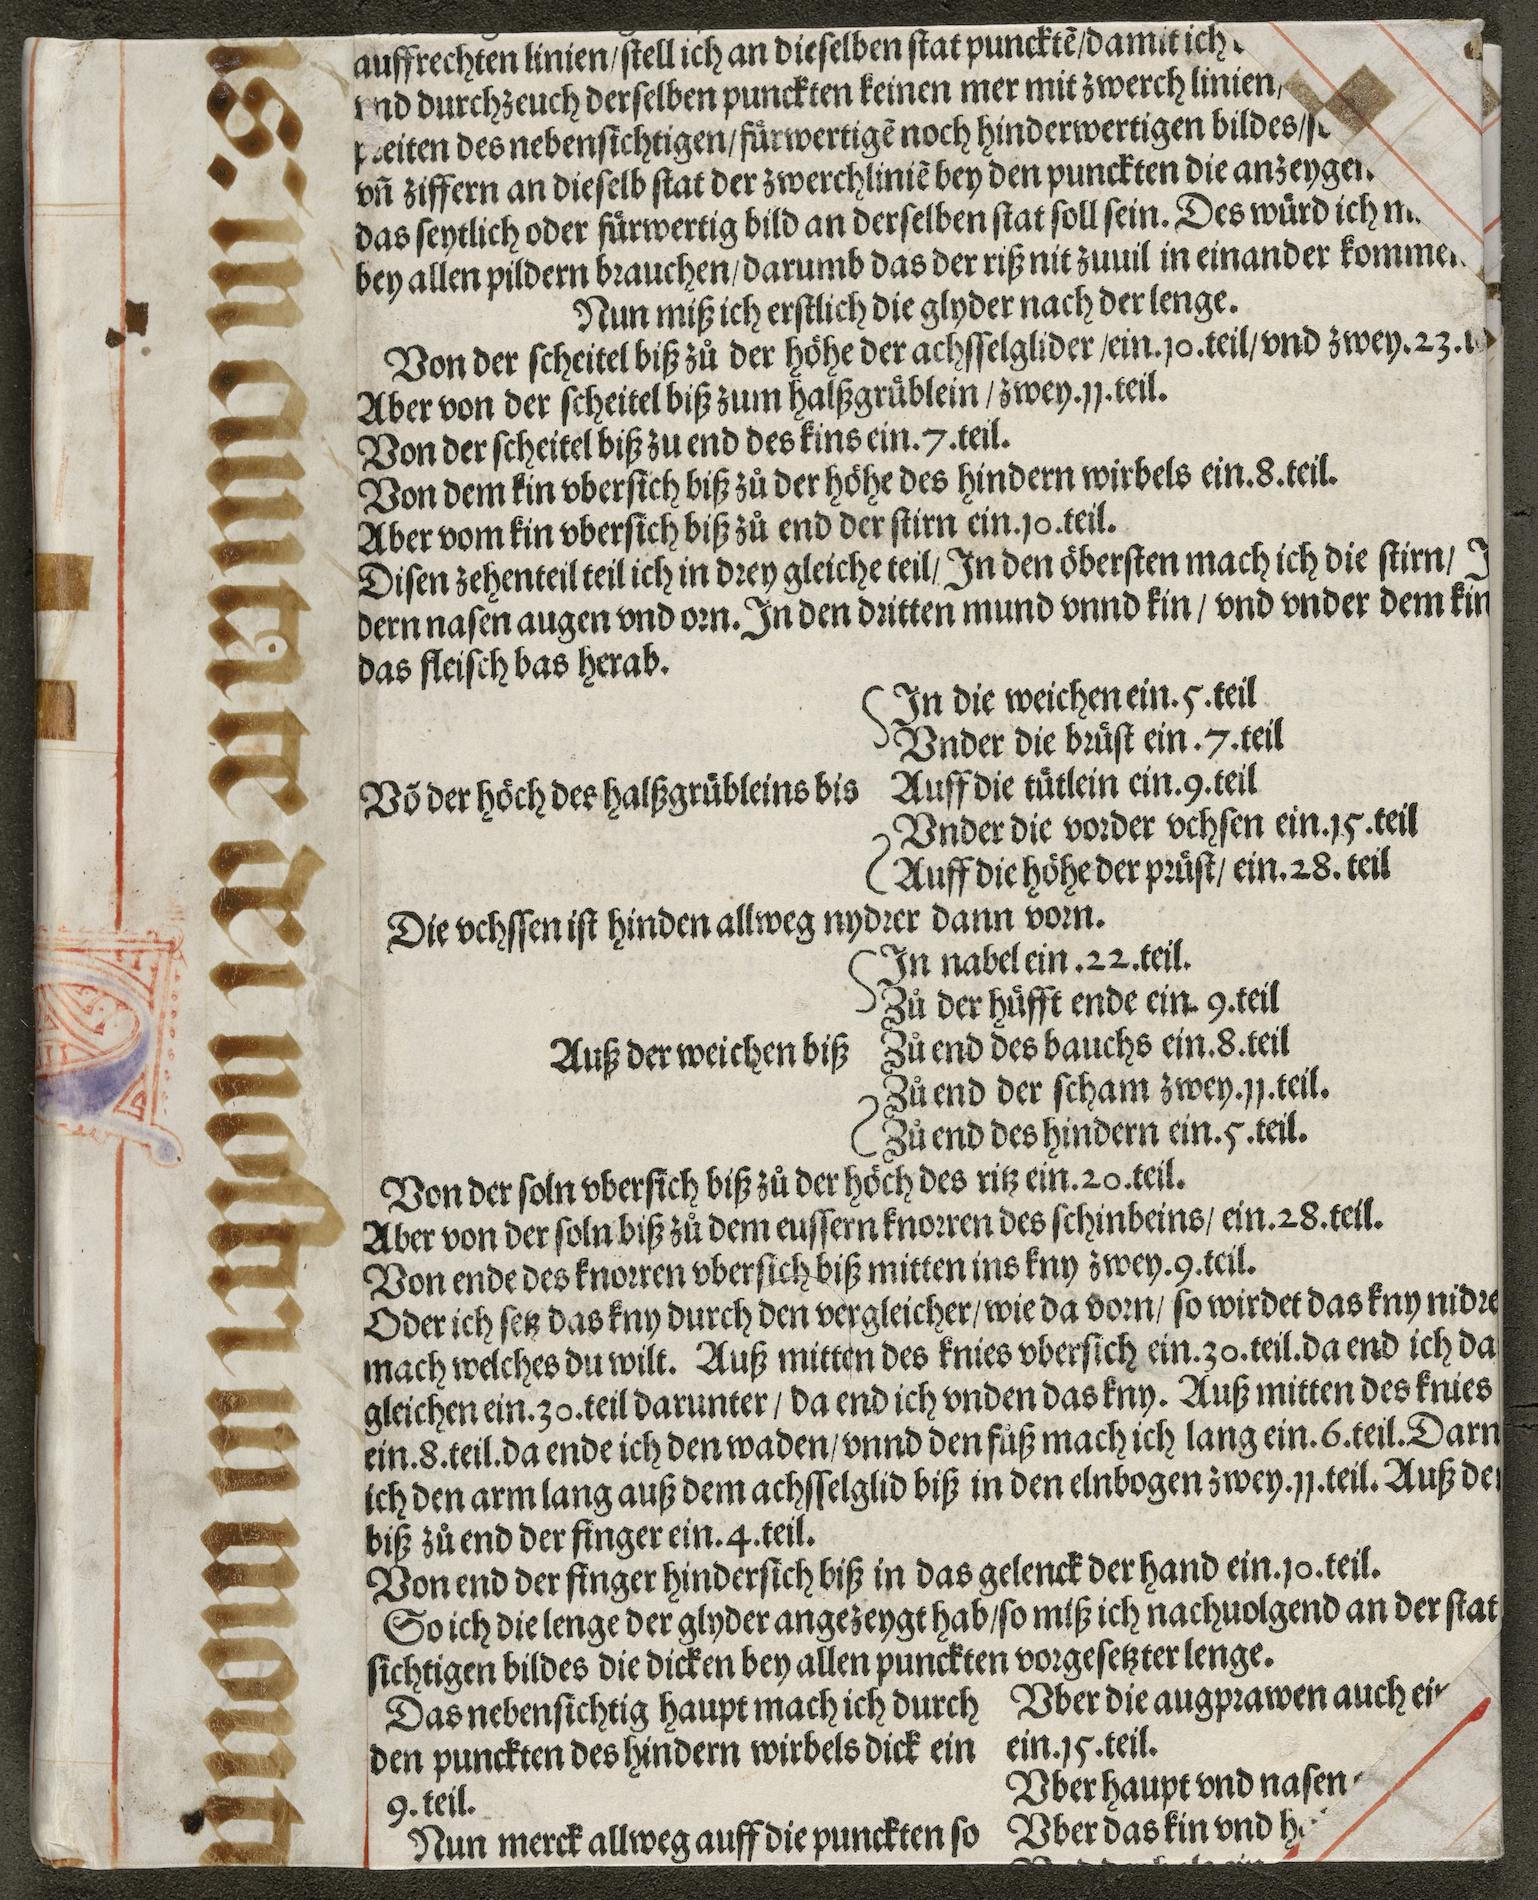 auffrechten linien/stell ich an dieselben stat punncktẽ/damit ich
vnd durchzeuch derselben punckten keinen mer mit zwerch linien,
preiten des nebensichtigen/fürwertigẽ noch hinderwertigen bildes/
vñ ziffern an dieselb stat der zwerchliniẽ bey den punckten die anzeygen
das seytlich oder fürwertig bild an derselben stat soll sein. Des würd ich
bey allen pildern brauchen/darumb das der riß nit zuuil in einander kommen
Nun miß ich erstlich die glyder nach der lenge.
Von der scheitel biß zů der höhe der achsselglider/ein.10.teil/vnd zwey.23.
Aber von der scheitel biß zum halßgrüblein/zwey.11.teil.
Von der scheitel biß zu end des kins ein.7.teil.
Von dem kin vbersich biß zů der höhe des hindern wirbels ein.8.teil.
Aber vom kin vbersich biß zů end der stirn ein.10.teil.
Disen zehenteil teil ich in drey gleiche teil/ In den öbersten mach ich die stirn/
dern nasen augen vnd orn. In den dritten mund vnnd kin/ vnd vnder dem kin
das fleisch bas herab.
In die weichen ein.5.teil
Vnder die brüst ein.7.teil
Võ der höch des halßgrübleins bis Auff die tütlein ein.9.teil
Vnder die vorder vchsen ein.15.teil
Auff die höhe der prüst/ ein.28.teil
Die vchssen ist hinden allweg nydrer dann vorn.
In nabel ein.22.teil.
Zů der hüfft ende ein.9.teil
Auß der weichen biß Zů end des bauchs ein.8.teil
Zů end der scham zwey.11.teil.
Zů end des hindern ein.5.teil.
Von der soln vbersich biß zů der höch des ritz ein.20.teil.
Aber von der soln biß zů dem eussern knorren des schinbeins/ ein.28.teil.
Von ende des knorren vbersich biß mitten ins kny zwey.9.teil.
Oder ich setz das kny durch den vergleicher/wie da vorn/ so wirdet das kny nidre
mach welches du wilt. Auß mitten des knies vbersich ein.30.teil.da end ich da
gleichen ein.30.teil darunter/ da end ich vnden das kny. Auß mitten des knies
ein.8.teil.da ende ich den waden/vnnd den fůß mach ich lang ein.6.teil.Darn
ich den arm lang auß dem achsselglid biß in den elnbogen zwey.11.teil. Auß de
biß zů end der finger ein.4.teil.
Von end der finger hindersich biß in das gelenck der hand ein.10.teil.
So ich die lenge der glyder angezeygt hab/so miß ich nachuolgend an der stat
sichtigen bildes die dicken bey allen punckten vorgesetzter lenge.
Das nebensichtig haupt mach ich durch
den punckten des hindern wirbels dick ein
9.teil.
Nun merck allweg auff die punckten so
Vber die augprawen auch ein
ein.15.teil.
Vber haupt vnd nasen
Vber das kin vnd